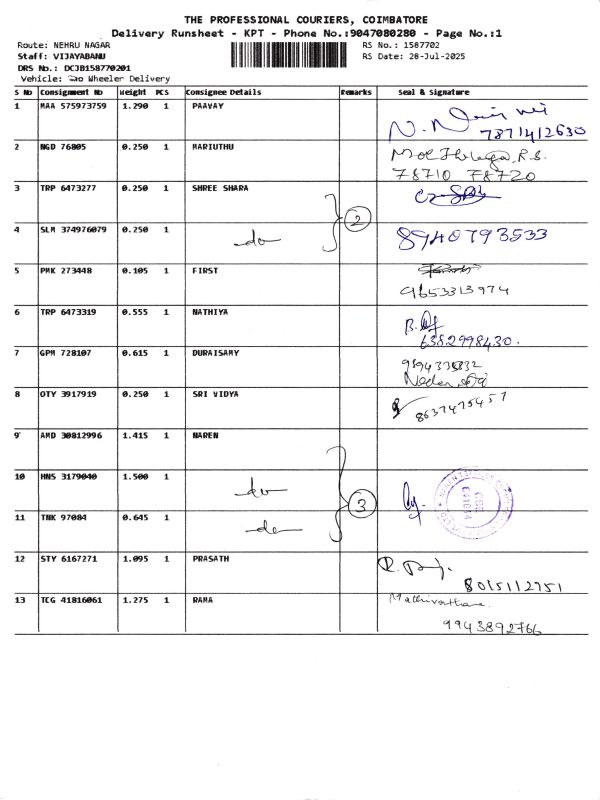 THE PROFESSIONAL COURIERS, COIMBATORE
Delivery Runsheet - KPT - Phone No.:9047080280 - Page No.:1
Route: NEHRU NAGAR
RS No.: 1587702
Staff: VIJAYABANU
RS Date: 28-Jul-2025
DRS No.: DCJB158770201
Vehicle: Two Wheeler Delivery
S No Consignment No Weight PCS Consignee Details Remarks Seal & Signature
1 MAA 575973759 1.290 1 PAAVAY
7871412630
2 NGD 76805 0.250 1 MARIUTHU
R.S.
78710 78720
3 TRP 6473277 0.250 1 SHREE SHARA
2
4 SLM 374976079 0.250 1 do 8940793533
5 PMK 273448 0.105 1 FIRST
9653313974
6 TRP 6473319 0.555 1 NATHIYA
6382998430.
7 GPM 728107 0.615 1 DURAISAMY
8 OTY 3917919 0.250 1 SRI VIDYA 8637475457
9 AMD 30812996 1.415 1 NAREN
10 HNS 3179040 1.500 1 do
3
11 TNK 97084 0.645 1 do
12 STY 6167271 1.095 1 PRASATH
8015112751
13 TCG 41816061 1.275 1 RAMA
9943892766